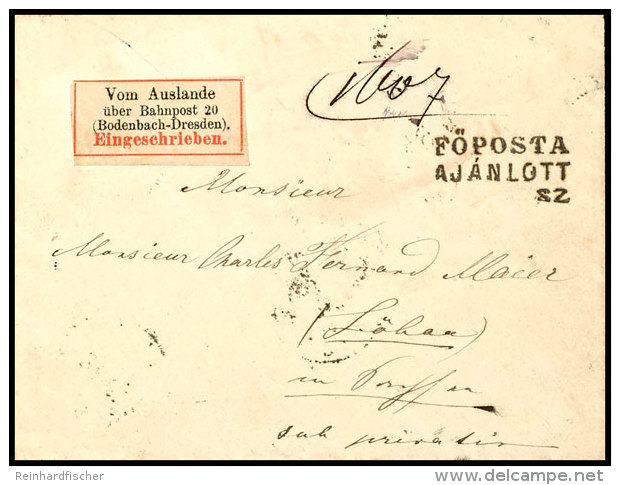 Vom Auslande
über Bahnpost 20
(Bodenbach-Dresden).
Eingeschrieben.
FŐPOSTA
AJÁNLOTT
SZ
Monsieur
Monsieur Charles Fernand Maier
in
sub
Reinhardfischer
delcampe.net